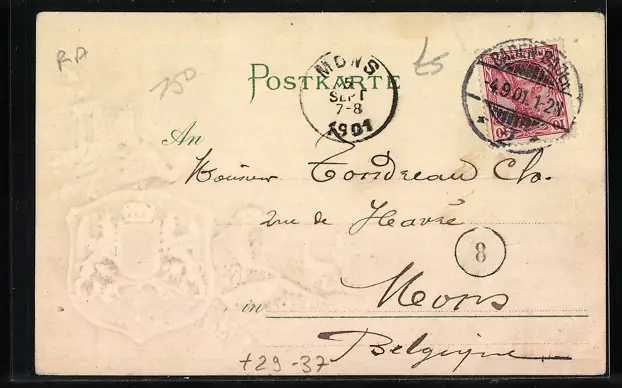 RA
150
POSTKARTE
MONS
5
SEPT
7-8
1901
BADEN-BADEN
-4.9.01. 1-2N
* 2 *
10 10
An
Monsieur Tondreau Ch.
rue de Havré
8
in Mons
Belgique
+29-37